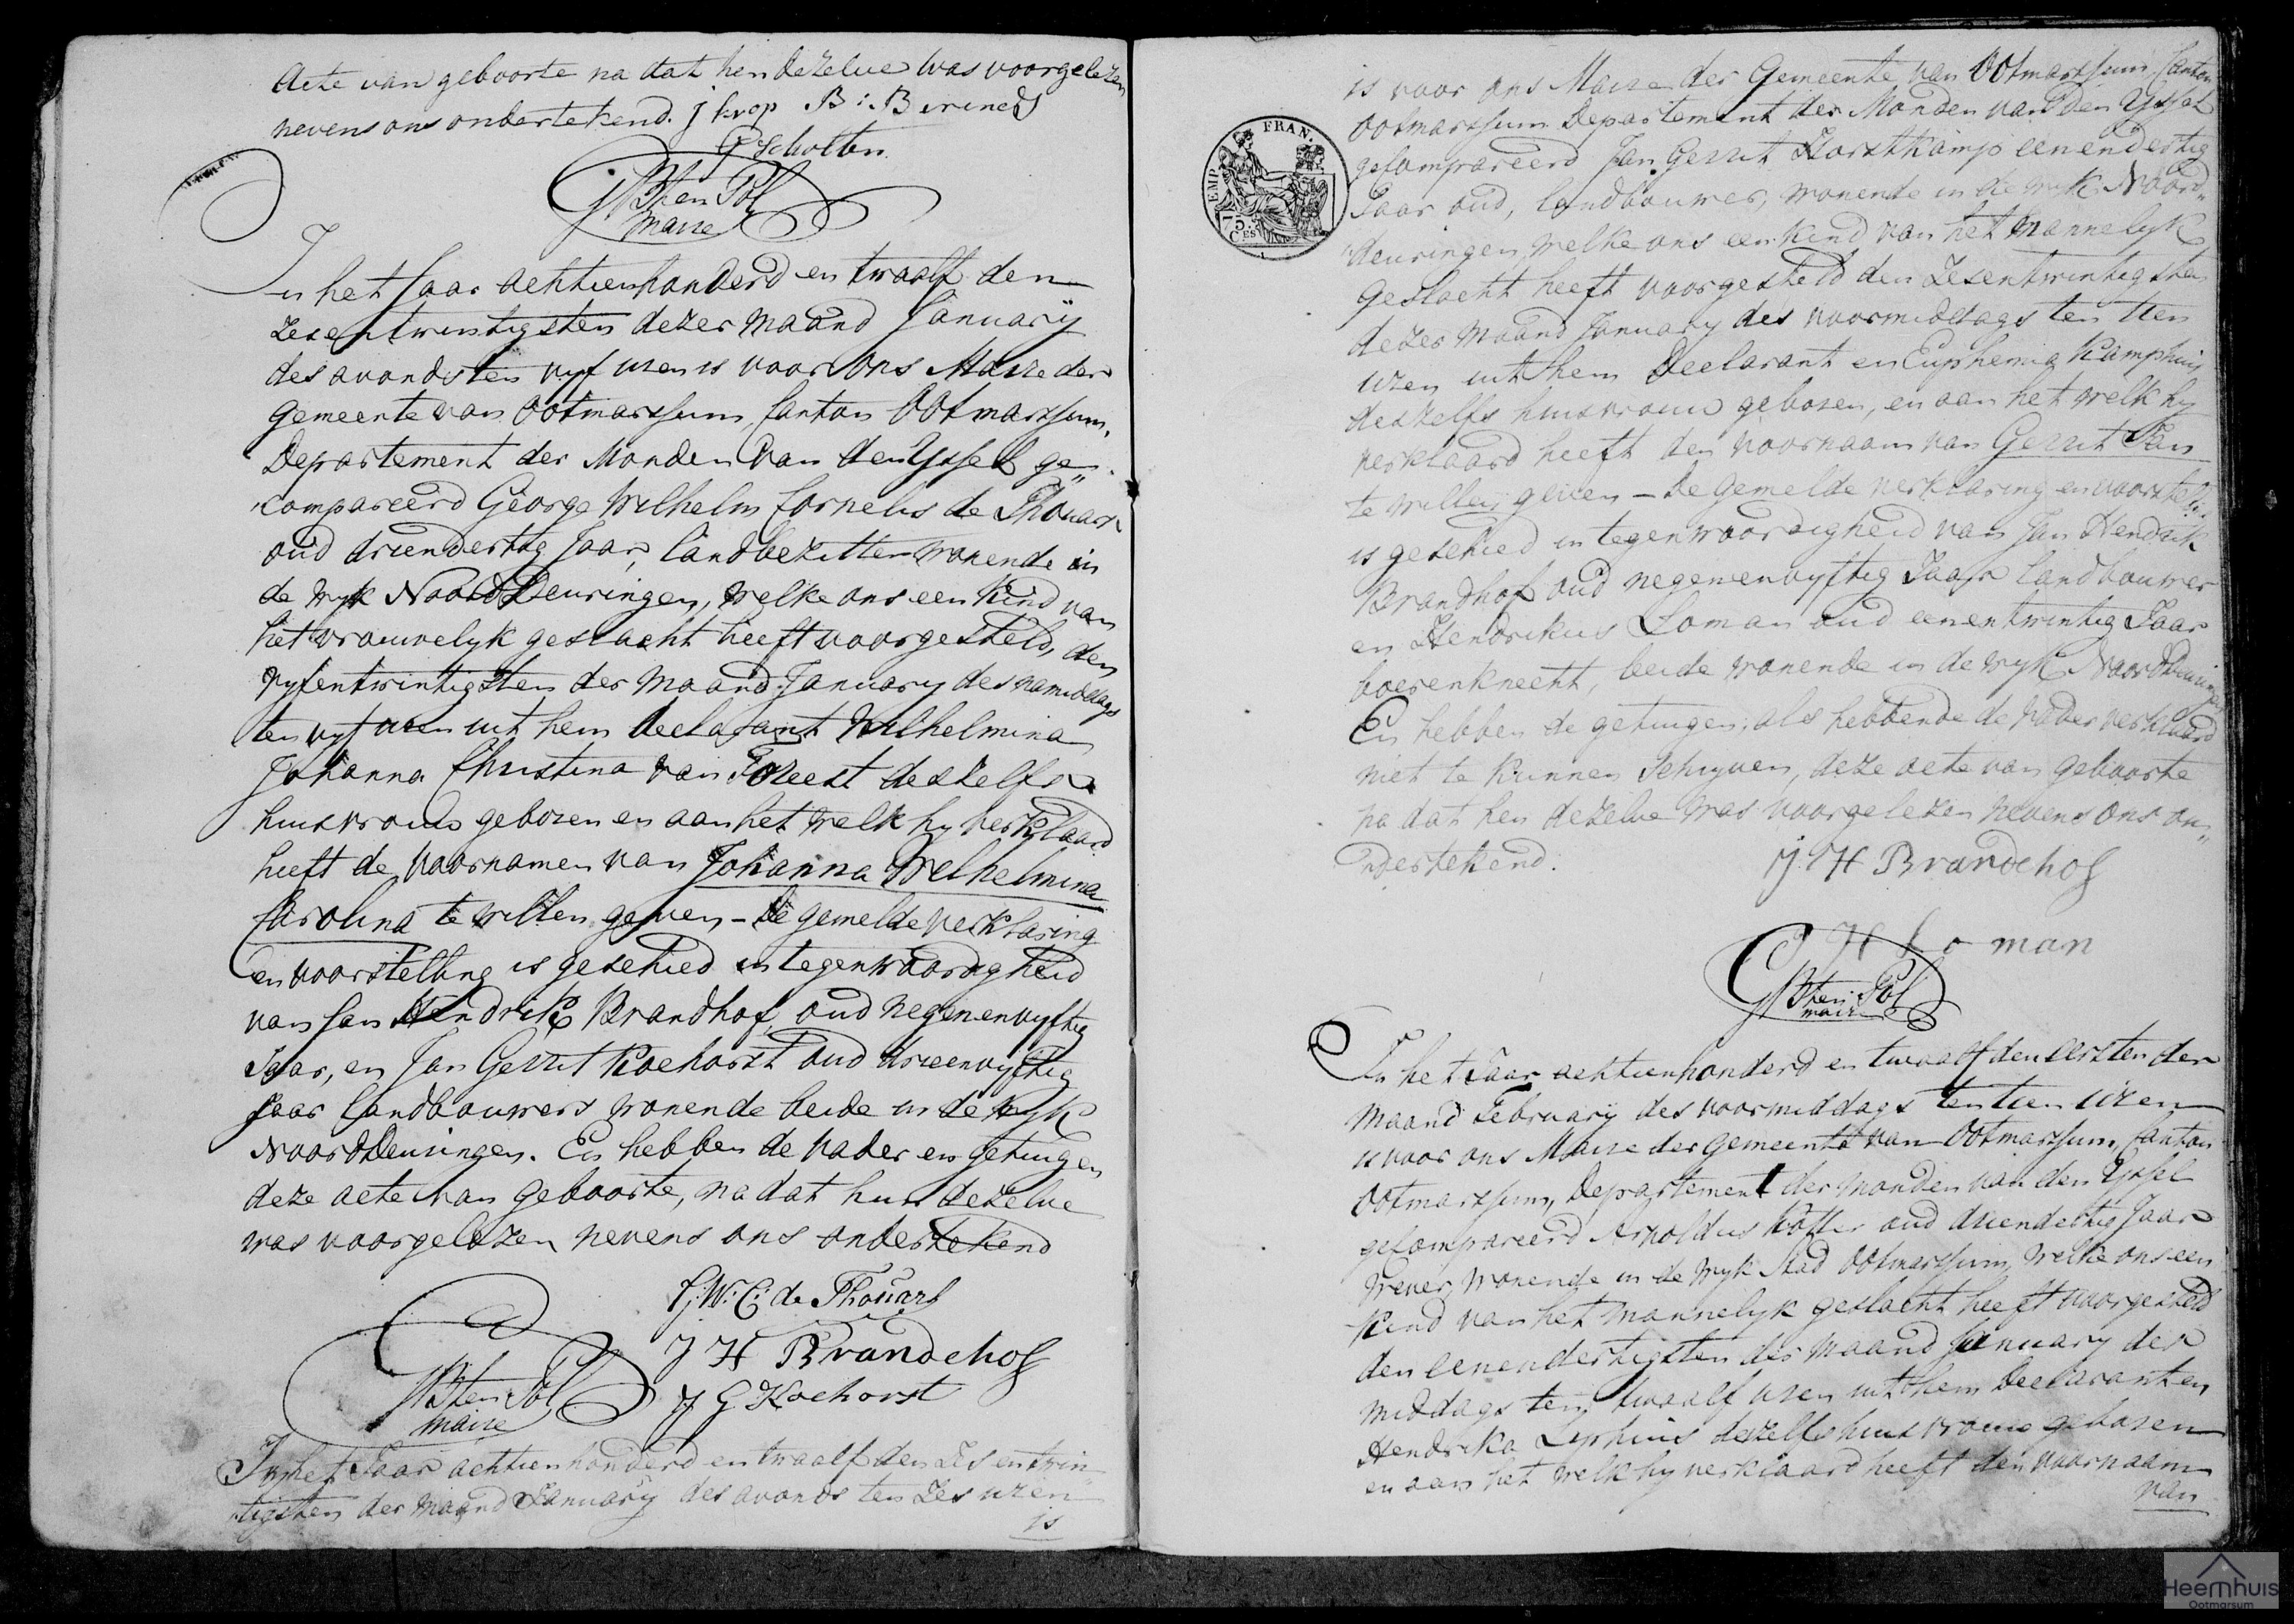 Acte van geboorte na dat hen dezelve was voorgelezen
nevens ons ondertekend. J krop B: B
G Scholten
Sten Pol
maire
In het Jaar achttienhonderd en twaalf den
zesentwintigsten dezer maand January
des avonds ten vyf uren is voor Ons Maire der
Gemeente van Ootmarssum, Canton Ootmarssum,
Departement der Monden van den Yssel ge„
compareerd George Wilhelm Cornelis de Thouars
oud drieendertig Jaar, landbezitter wonende in
de wyk Noord Deuringen, welke ons een kind van
het vrouwelyk geslacht heeft voorgesteld, den
vyfentwintigsten der maand January des namiddags
ten vyf uren uit hem Declarant Wilhelmina
Johanna Christina van Foreest deszelfs
huisvrouw geboren en aan het welk hy verklaard
heeft de voornamen van Johanna Wilhelmina
Carolina te willen geven – De gemelde verklaring
en voorstelling is geschied in tegenwoordigheid
van Jan Hendrik Brandhof, oud negenenvyftig
Jaar, en Jan Gerrit Koehorst oud drieenvyftig
Jaar landbouwers wonende beide in de wyk
Noord Deuringen. En hebben de vader en getuigen
deze acte van geboorte, na dat hun dezelve
was voorgelezen nevens ons ondertekend
G: W: C: de Thouars
J H Brandehof
J G Koehorst
Sten Pol
maire
In het Jaar achttienhonderd en twaalf den Zesentwin
tigsten der maand January des avonds ten Zes uren
is
is voor ons Maire der Gemeente van Ootmarssum, Canton
Ootmarssum Departement der Monden van den Yssel
gecompareerd Jan Gerrit Horstkamp eenendertig
Jaar oud, landbouwer, wonende in de wyk Noord„
deuringen, welke ons een kind van het mannelyk
Geslacht heeft voorgesteld den Zesentwintigsten
dezer maand January des voormiddags ten tien
uren uit hem Declarant en Euphemia Kamphuis
deszelfs huisvrouw geboren, en aan het welk hy
verklaard heeft den voornaam van Gerrit Jan
te willen geven – De gemelde verklaring en voorstelling
is geschied in tegenwoordigheid van Jan Hendrik
Brandhof oud negenenvyftig Jaar landbouwer
en Hendrikus Loman oud eenentwintig Jaar
boerenknecht, beide wonende in de wyk Noord Deuringen
En hebben de getuigen, als hebbende de vader verklaard
niet te kunnen schryven, deze acte van geboorte
na dat hen dezelve was voorgelezen nevens ons on„
dertekend.
J. H Brandehof
H Loman
Sten Pol
maire
In het Jaar achttienhonderd en twaalf den eersten der
maand February des voormiddags ten tien uren
is voor ons Maire der Gemeente van Ootmarssum, Canton
Ootmarssum, Departement der monden van den Yssel
gecompareerd Arnoldus oud drieendertig Jaar
wever, wonende in de wyk Stad Ootmarssum, welke ons een
kind van het mannelyk geslacht heeft voorgesteld
den eenendertigsten der maand January der
middags ten twaalf uren uit hem Declarant en
Hendrika deszelfs huisvrouw geboren
en aan het welk hy verklaard heeft den voornaam
van
EMP. FRAN.
75.
CES
Heemhuis
Ootmarsum